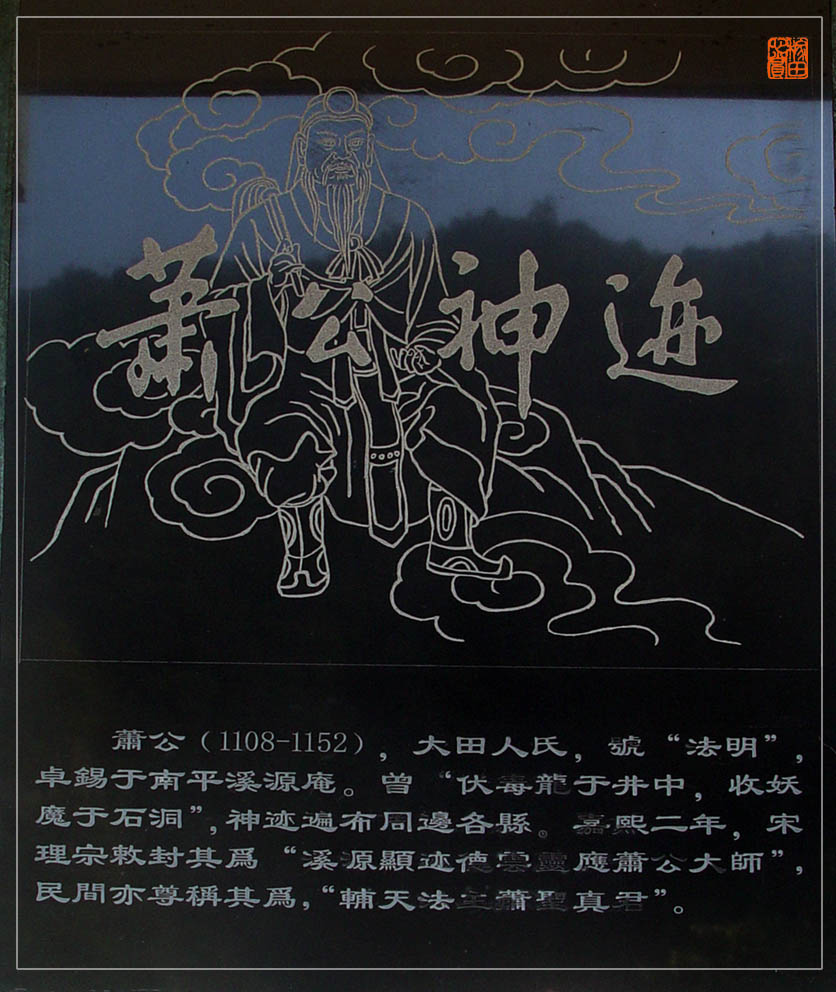 萧公神迹
蕭公（1108-1152），大田人氏，號“法明”，
卓錫于南平溪源庵。曾“伏毒龍于井中，收妖
魔于石洞”，神迹遍布周邊各縣。嘉熙二年，宋
理宗敕封其爲“溪源顯迹德雲靈應蕭公大師”，
民間亦尊稱其爲，“輔天法主蕭聖真君”。